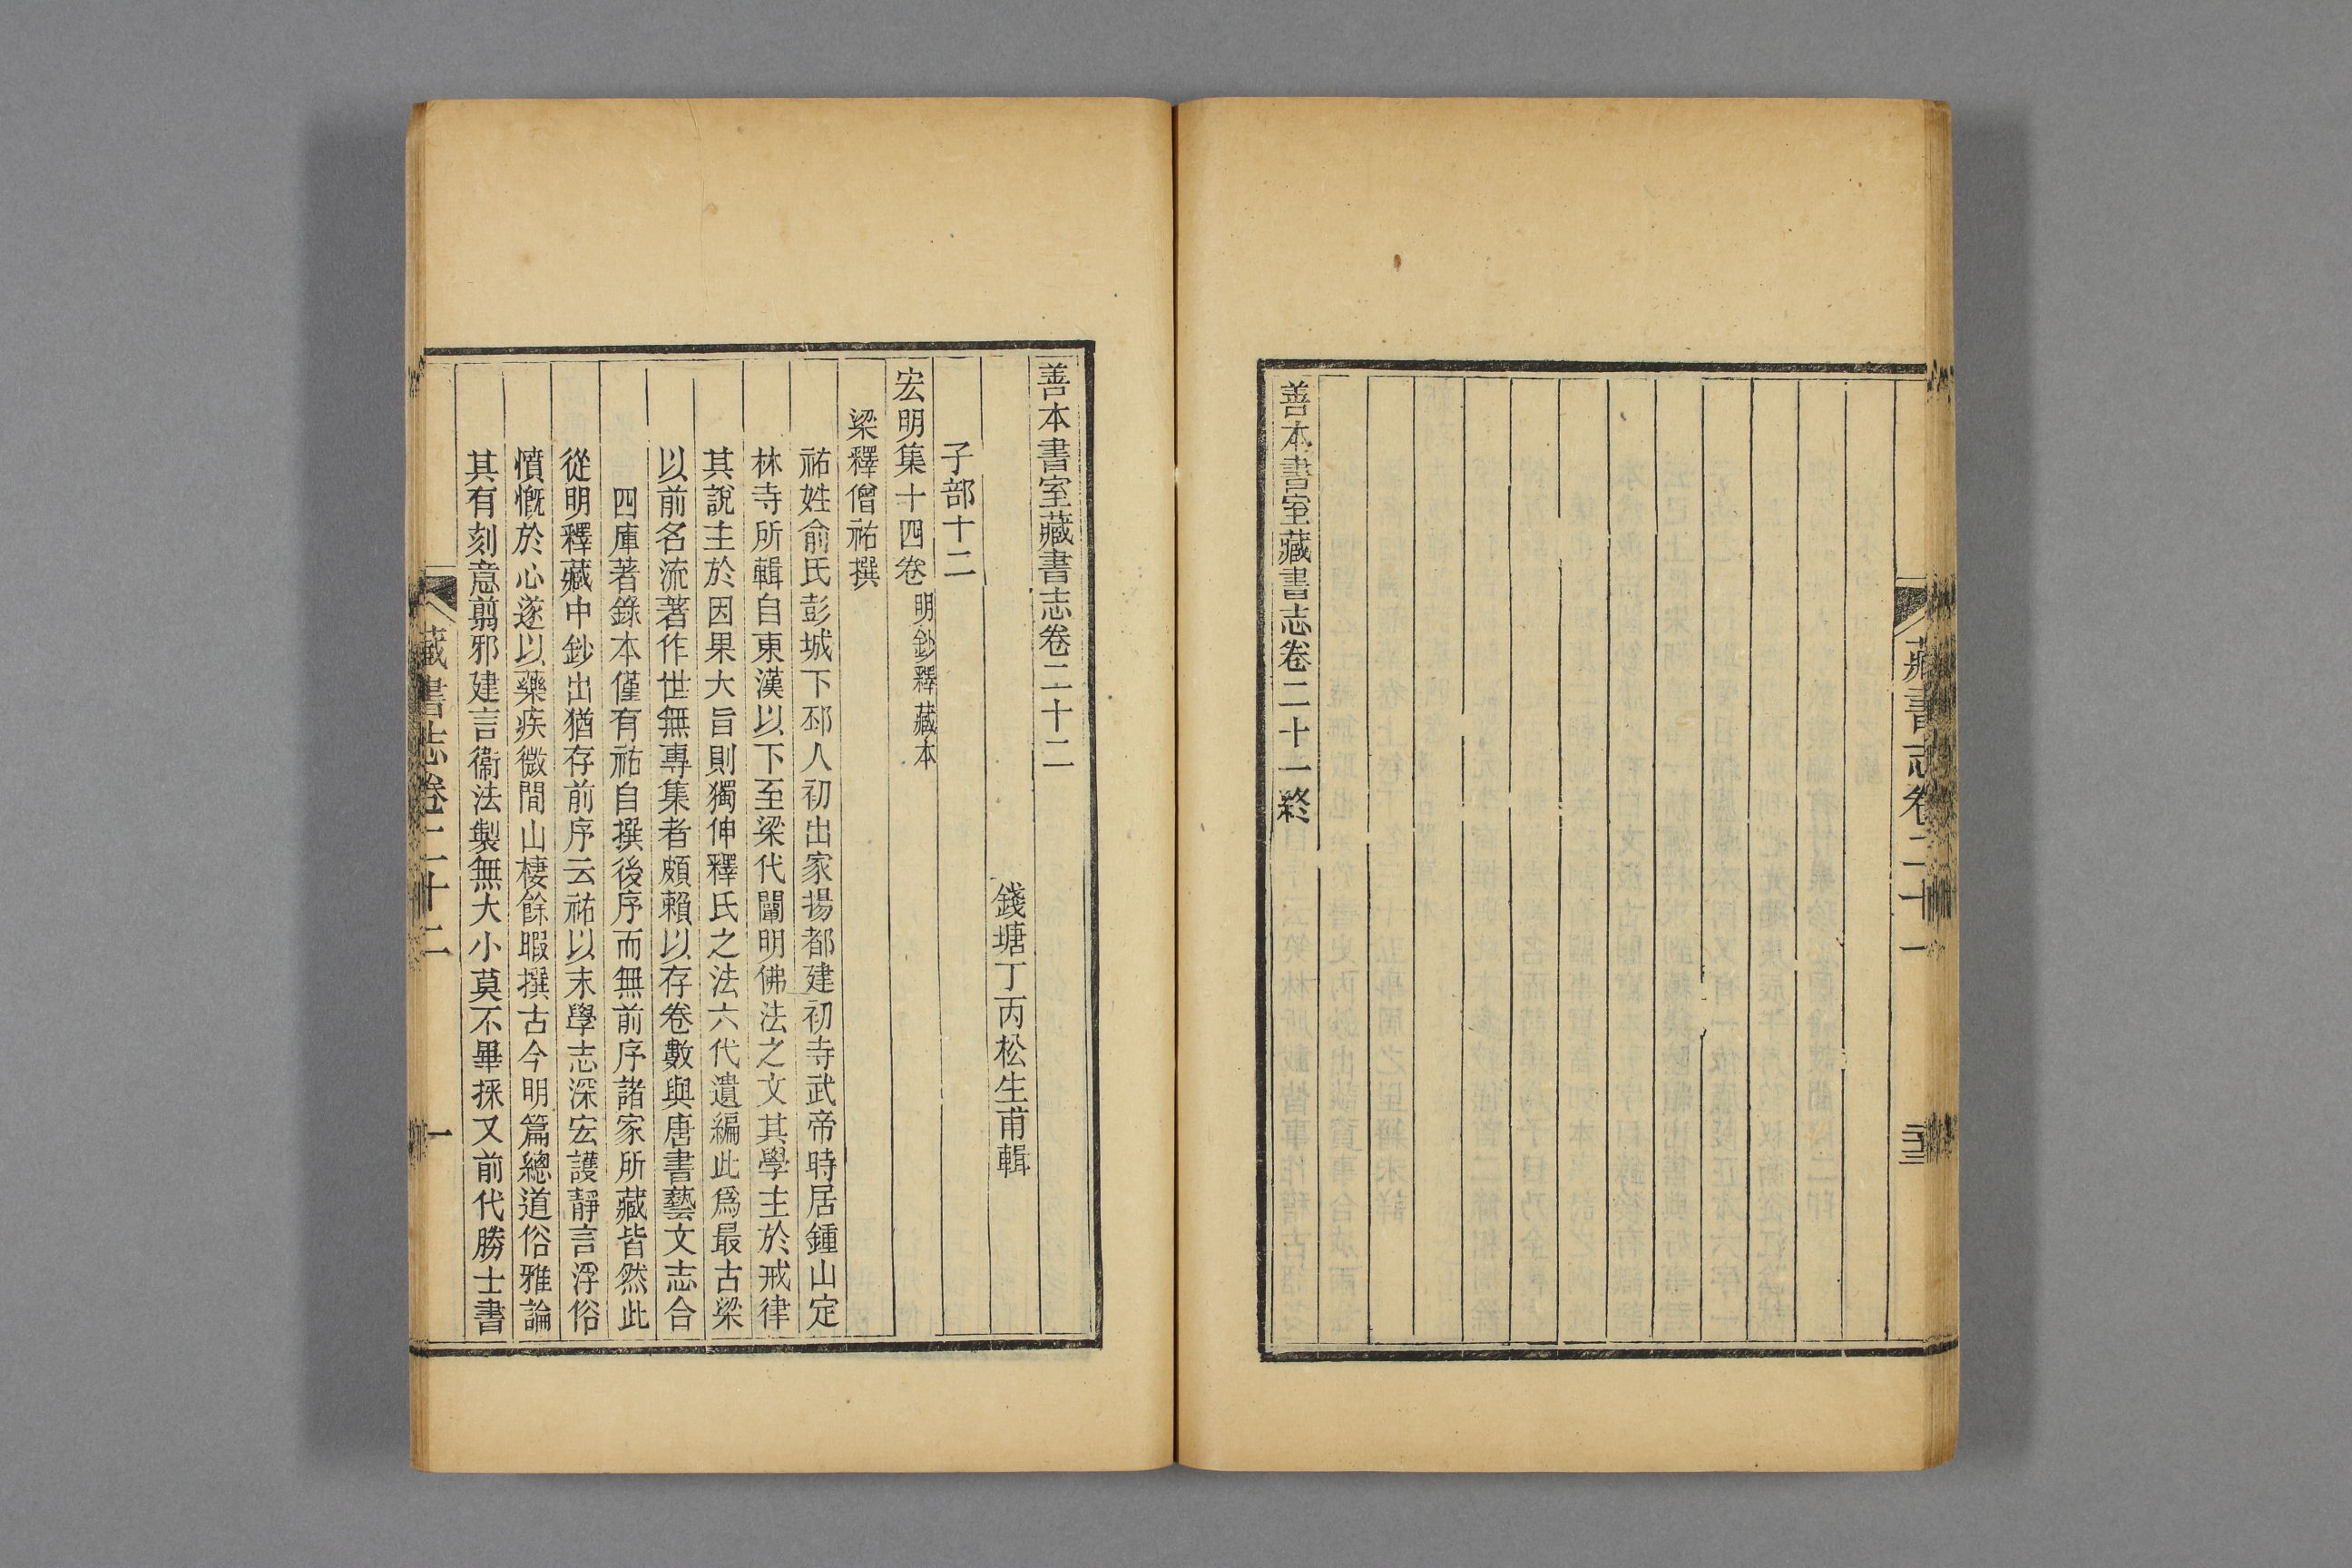 藏書志卷二十一
善本書室藏書志卷二十一終
善本書室藏書志卷二十二
錢塘丁丙松生甫輯
子部十二
宏明集十四卷明鈔釋藏本
梁釋僧祐撰
祐姓俞氏彭城下邳人初出家揚都建初寺武帝時居鍾山定
林寺所輯自東漢以下至梁代闡明佛法之文其學主於戒律
其說主於因果大旨則獨伸釋氏之法六代遺編此爲最古梁
以前名流著作世無專集者頗賴以存卷數與唐書藝文志合
四庫著錄本僅有祐自撰後序而無前序諸家所藏皆然此
從明釋藏中鈔出猶存前序云祐以末學志深宏護靜言浮俗
憤慨於心遂以藥疾微間山棲餘暇撰古今明篇總道俗雅論
其有刻意翦邪建言衞法製無大小莫不畢採又前代勝士書
藏書志卷二十二
一